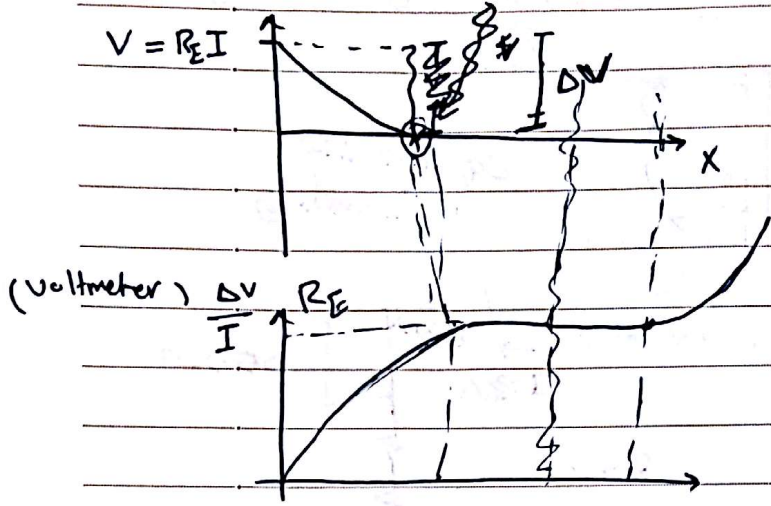 V = R_E I
ΔV
X
(Voltmeter) ΔV/I R_E